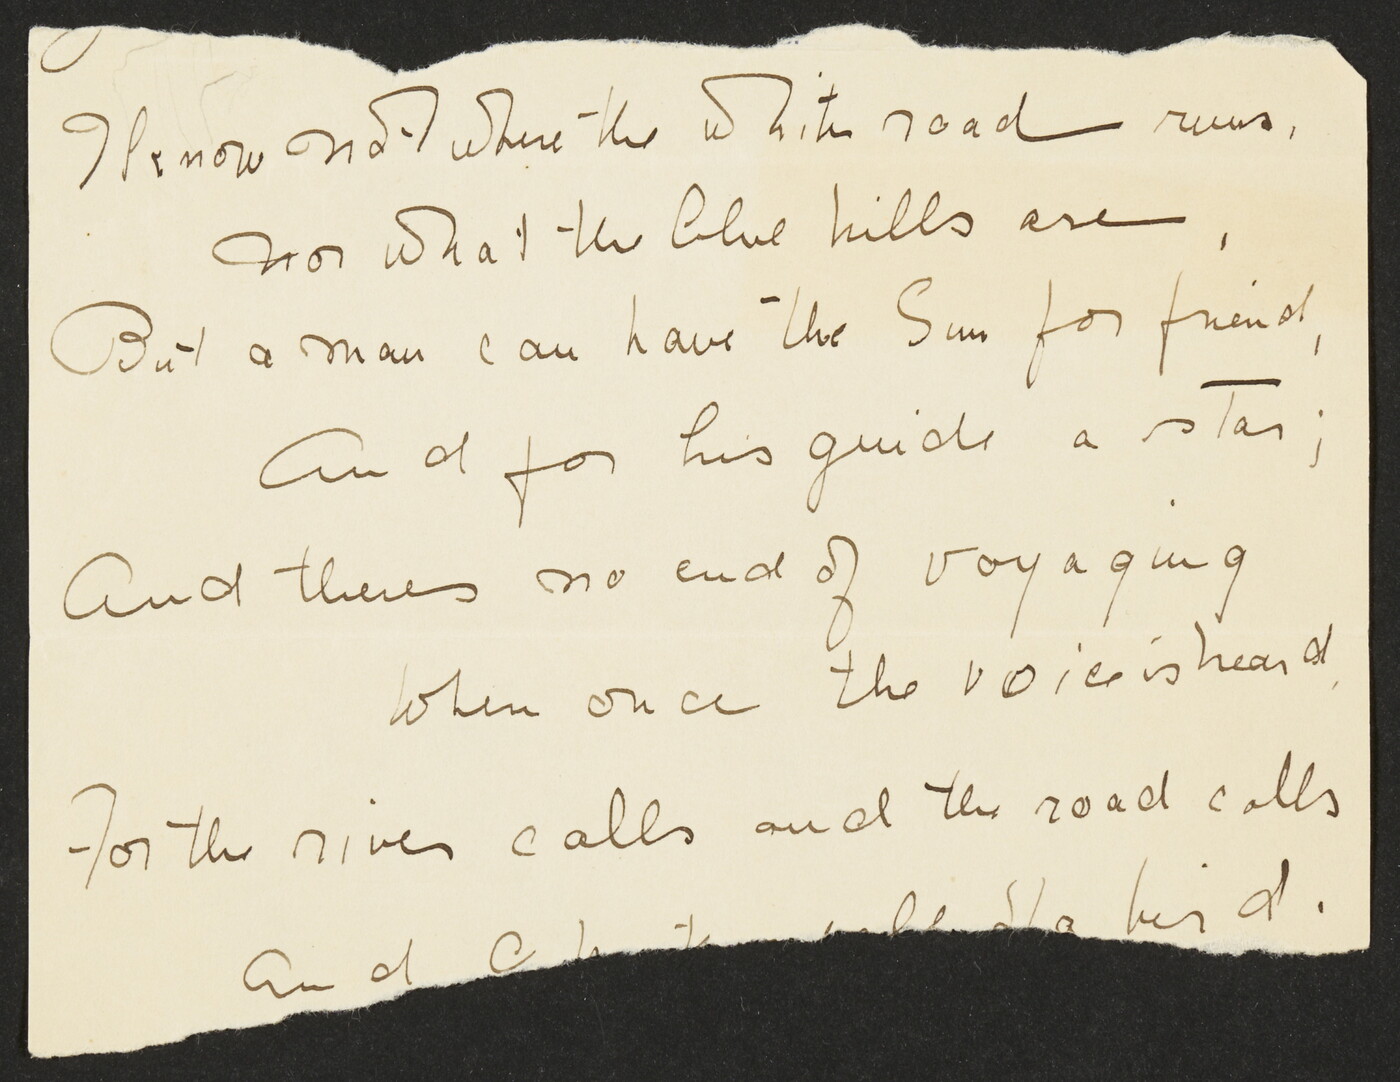 I know not where the white road runs,
nor what the blue hills are,
But a man can have the Sun for friend,
And for his guide a star;
And theres no end of voyaging
When once the voice is heard,
For the river calls and the road calls
And O the call of a bird.